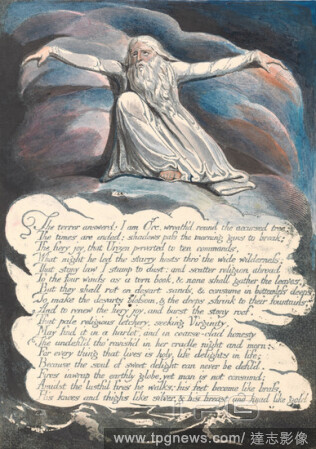 The terror answerd: I am Orc, wreath'd round the accursed tree:
The times are ended; shadows pass the morning gins to break;
The fiery joy, that Urizen perverted to ten commands,
What night he led the starry hosts thro' the wide wilderness:
That stony law I stamp to dust: and scatter religion abroad
To the four winds as a torn book, & none shall gather the leaves;
But they shall rot on desart sands, & consume in bottomless deeps;
To make the desarts blossom, & the deeps shrink to their fountains,
And to renew the fiery joy, and burst the stony roof.
That pale religious letchery, seeking Virginity,
May find it in a harlot, and in coarse-clad honesty
The undefil'd tho' ravish'd in her cradle night and morn:
For every thing that lives is holy, life delights in life;
Because the soul of sweet delight can never be defil'd.
Fires inwrap the earthly globe, yet man is not consumd;
Amidst the lustful fires he walks: his feet become like brass,
His knees and thighs like silver, & his breast and head like gold.
www.tpgnews.com / 達志影像